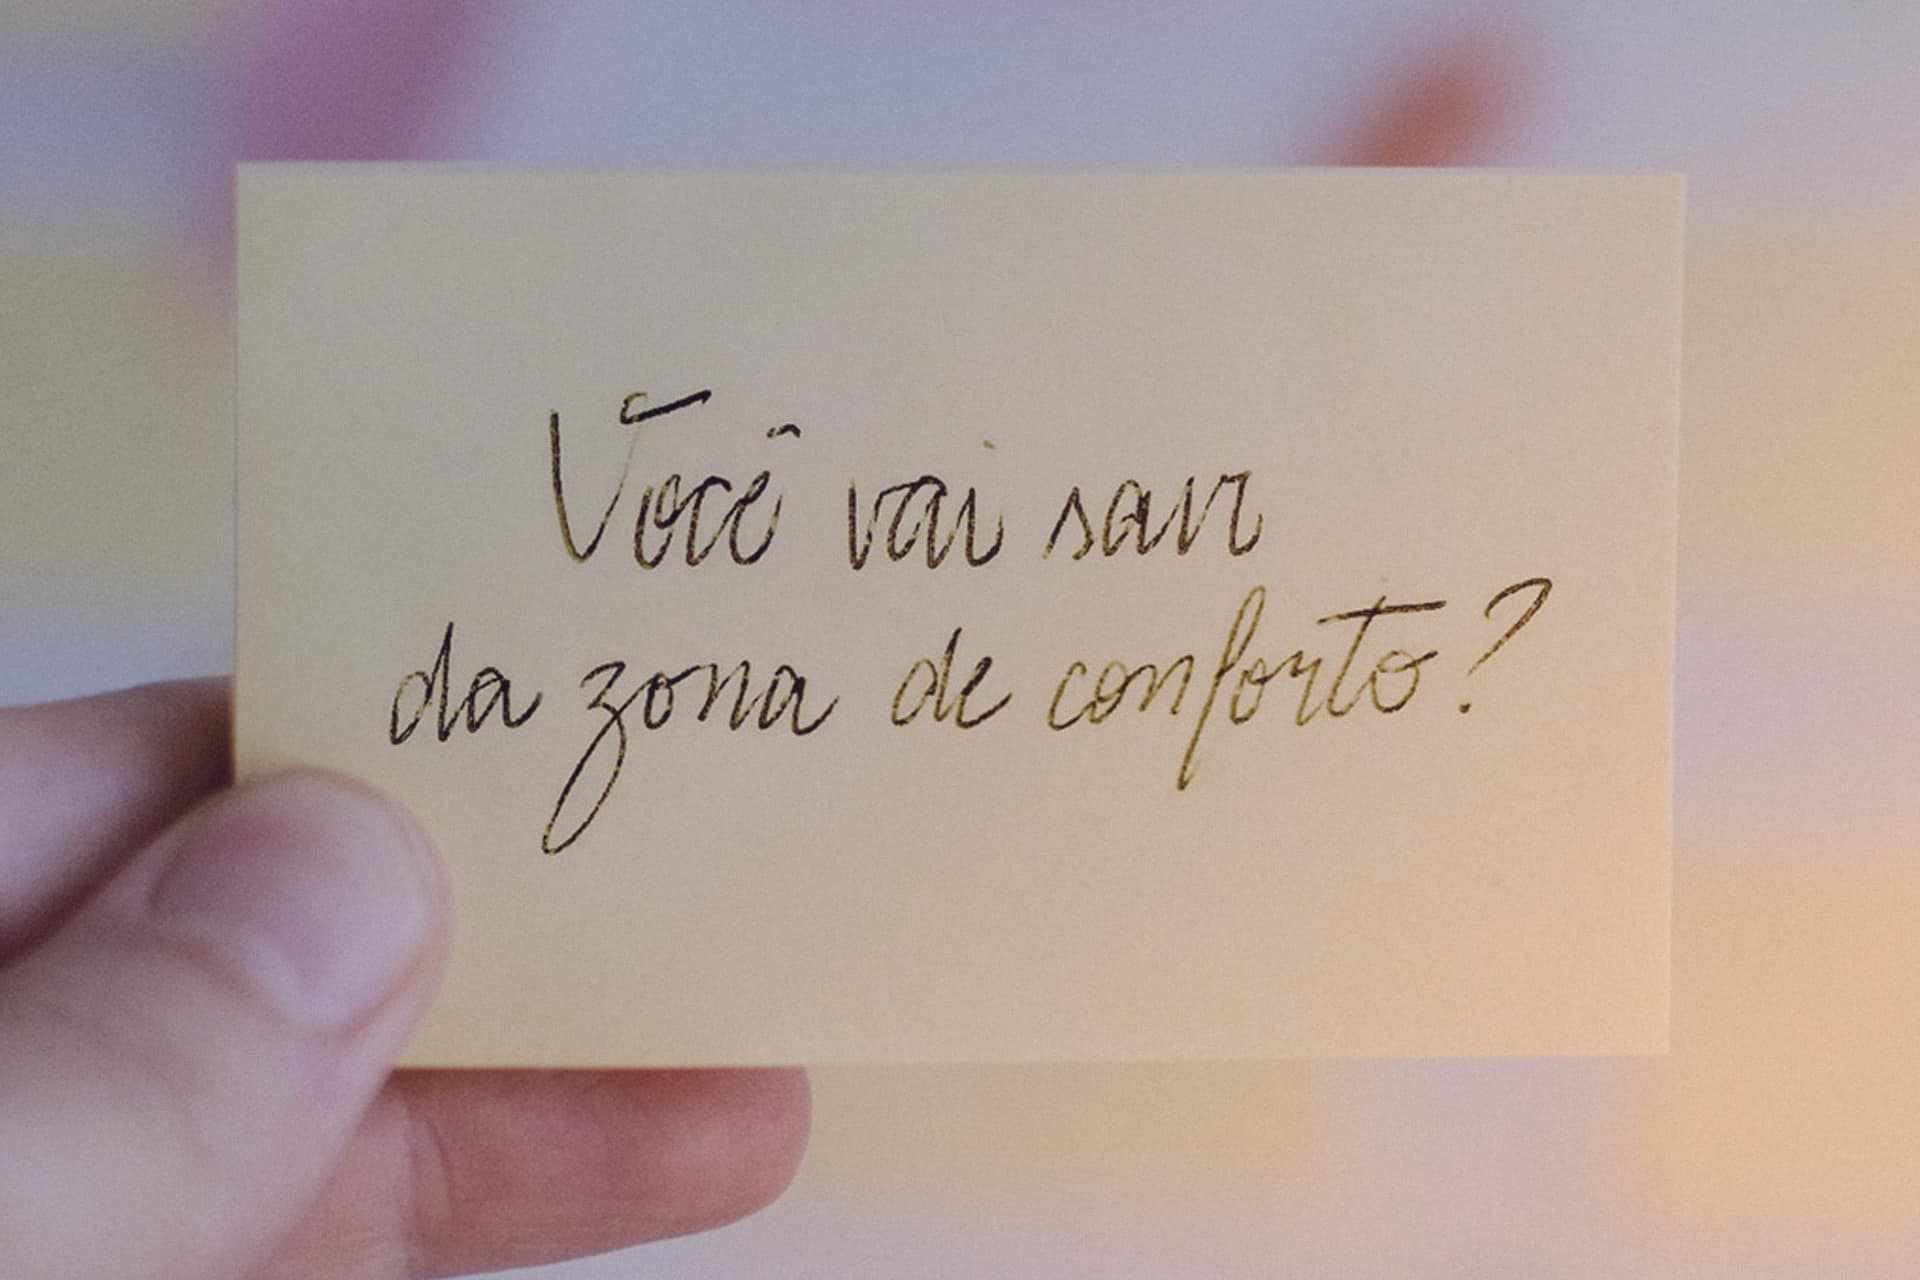 Você vai sair
da zona de conforto?